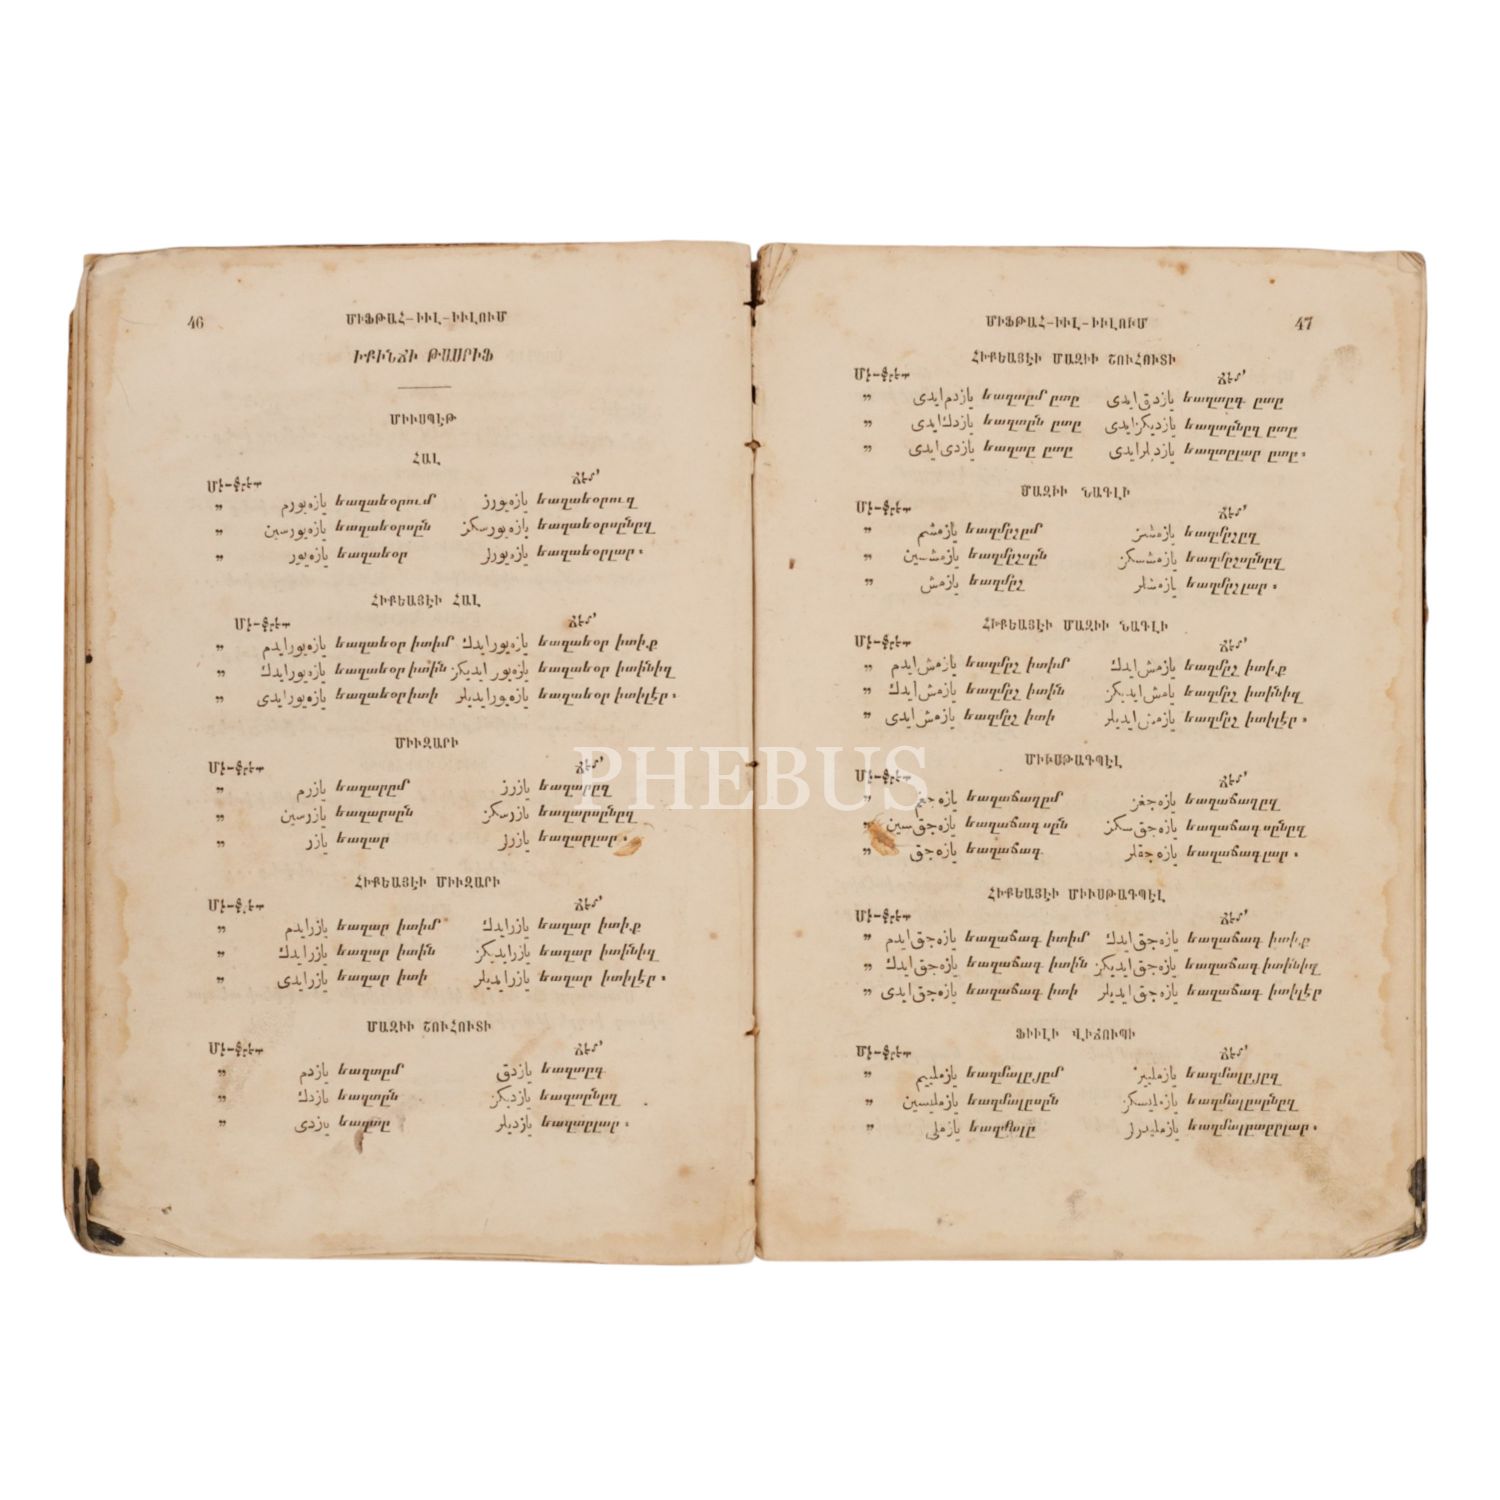 46
ՄԻՖԹԱՀ-ԻՒԼ-ԻՒԼՈՒՄ
ԻՔԻՆՃԻ ԹԱՍՐԻՖ
ՄԻՒՍՊԷԹ
ՀԱԼ
Մէֆրէտ ճէմ՛
„ یازه‌یورم եազաեօրում یازه‌یورز եազաեօրուզ
„ یازه‌یورسین եազաեօրսըն یازه‌یورسکز եազաեօրսընըզ
„ یازه‌یور եազաեօր یازه‌یورلر եազաեօրլար։
ՀԻՔԵԱՅԷԻ ՀԱԼ
Մէֆրէտ ճէմ՛
„ یازه‌یور ایدم եազաեօր իտիմ یازه‌یور ایدك եազաեօր իտիք
„ یازه‌یور ایدك եազաեօր իտին یازه‌یور ایدیکز եազաեօր իտինիզ
„ یازه‌یور ایدی եազաեօր իտի یازه‌یور ایدیلر եազաեօր իտիլէր։
ՄԻՒԶԱՐԻ
Մէֆրէտ ճէմ՛
„ یازرم եազարըմ یازرز եազարըզ
„ یازرسین եազարսըն یازرسکز եազարսընըզ
„ یازر եազար یازرلر եազարլար։
ՀԻՔԵԱՅԷԻ ՄԻՒԶԱՐԻ
Մէֆրէտ ճէմ՛
„ یازر ایدم եազար իտիմ یازر ایدك եազար իտիք
„ یازر ایدك եազար իտին یازر ایدیکز եազար իտինիզ
„ یازر ایدی եազար իտի یازر ایدیلر եազար իտիլէր։
ՄԱԶԻԻ ՇՈՒՀՈՒՏԻ
Մէֆրէտ ճէմ՛
„ یازدم եազտըմ یازدق եազտըգ
„ یازدك եազտըն یازدیکز եազտընըզ
„ یازدی եազտը یازدیلر եազտըլար։
ՄԻՖԹԱՀ-ԻՒԼ-ԻՒԼՈՒՄ
47
ՀԻՔԵԱՅԷԻ ՄԱԶԻԻ ՇՈՒՀՈՒՏԻ
Մէֆրէտ ճէմ՛
„ یازدم ایدی եազտըմ ըտը یازدق ایدی եազտըգ ըտը
„ یازدك ایدی եազտըն ըտը یازدیکز ایدی եազտընըզ ըտը
„ یازدی ایدی եազտը ըտը یازدیلر ایدی եազտըլար ըտը։
ՄԱԶԻԻ ՆԱԳԼԻ
Մէֆրէտ ճէմ՛
„ یازمشم եազմըշըմ یازمشز եազմըշըզ
„ یازمشسین եազմըշսըն یازمشسکز եազմըշսընըզ
„ یازمش եազմըշ یازمشلر եազմըշլար։
ՀԻՔԵԱՅԷԻ ՄԱԶԻԻ ՆԱԳԼԻ
Մէֆրէտ ճէմ՛
„ یازمش ایدم եազմըշ իտիմ یازمش ایدك եազմըշ իտիք
„ یازمش ایدك եազմըշ իտին یامش ایدیکز եազմըշ իտինիզ
„ یازمش ایدی եազմըշ իտի یازمش ایدیلر եազմըշ իտիլէր։
ՄԻՒՍԹԱԳՊԷԼ
Մէֆրէտ ճէմ՛
„ یازه‌جغم եազաճաղըմ یازه‌جغز եազաճաղըզ
„ یازه‌جق سین եազաճագ սըն یازه‌جق سکز եազաճագ սընըզ
„ یازه‌جق եազաճագ یازه‌جقلر եազաճագլար։
ՀԻՔԵԱՅԷԻ ՄԻՒՍԹԱԳՊԷԼ
Մէֆրէտ ճէմ՛
„ یازه‌جق ایدم եազաճագ իտիմ یازه‌جق ایدك եազաճագ իտիք
„ یازه‌جق ایدك եազաճագ իտին یازه‌جق ایدیکز եազաճագ իտինիզ
„ یازه‌جق ایدی եազաճագ իտի یازه‌جق ایدیلر եազաճագ իտիլէր
ՖԻԻԼԻ ՎԻՃՈՒՊԻ
Մէֆրէտ ճէմ՛
„ یازملییم եազմալըյըմ یازملییز եազմալըյըզ
„ یازملیسین եազմալըսըն یازملیسکز եազմալըսընըզ
„ یازملی եազմալը یازملیدرلر եազմալըտըրլար։
PHEBUS